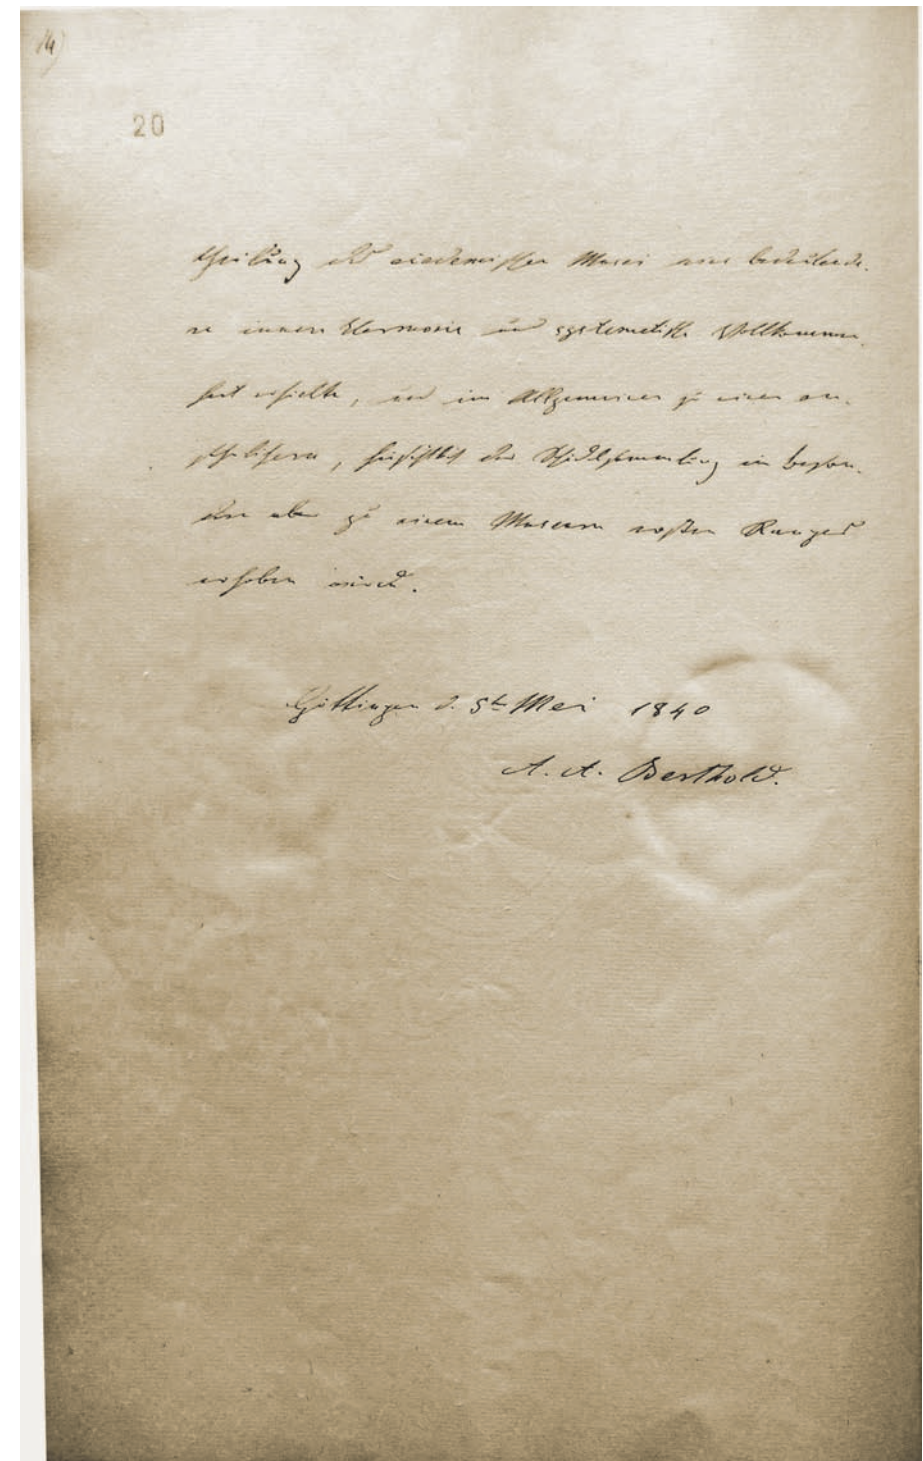 14)
20
theilung des academischen Musei eine bedeutende-
re innere Harmonie und systematische Vollkommen-
heit erhielte, und im Allgemeinen zu einer an-
sehnlichern, hinsichtlich der Schädelsammlung im beson-
dern aber zu einem Museum ersten Ranges
erhoben wird.
Göttingen d. 5t Mai 1840
A. A. Berthold.